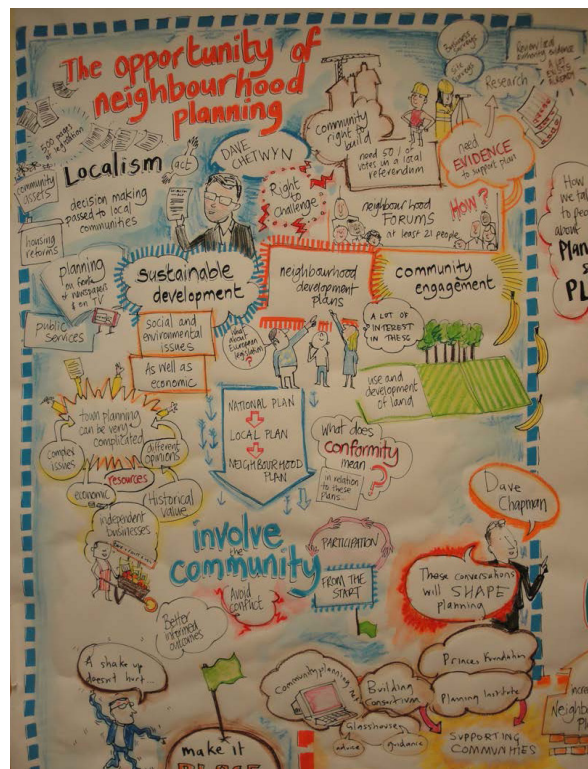 The opportunity of
neighbourhood
planning
500 pages
of legislation
Localism
act
DAVE
CHETWYN
community
assets
decision making
passed to local
communities
housing
reforms
planning
on front
of newspapers
& on TV
public
services
community
right to
build
need 50% of
votes in a local
referendum
Right
to
challenge
neighbourhood
FORUMS
at least 21 people
HOW?
Business
surveys
site
surveys
Research
need
EVIDENCE
to support plan
Review
existing evidence
A LOT
EXISTS
ALREADY
How
we tal
to p
about
PLAN
PL
sustainable
development
neighbourhood
development
plans
community
engagement
social and
environmental
issues
As well as
economic
what
about
European
legislation
?
A LOT OF
INTEREST
IN THESE
use and
development
of land
town planning
can be very
complicated
complex
issues
different
opinions
resources
economic
Historical
value
independent
businesses
NATIONAL PLAN
LOCAL PLAN
NEIGHBOURHOOD
PLAN
What does
conformity
mean
?
in relation
to these
plans...
involve
the
community
PARTICIPATION
FROM THE
START
Avoid
conflict
Better
informed
outcomes
Dave
Chapman
These conversations
will SHAPE
planning
A shake up
doesn't hurt...
make it
communityplanning.net
Building
Consortium
Glasshouse
advice
guidance
Princes Foundation
Planning Institute
SUPPORTING
COMMUNITIES
Neighbo